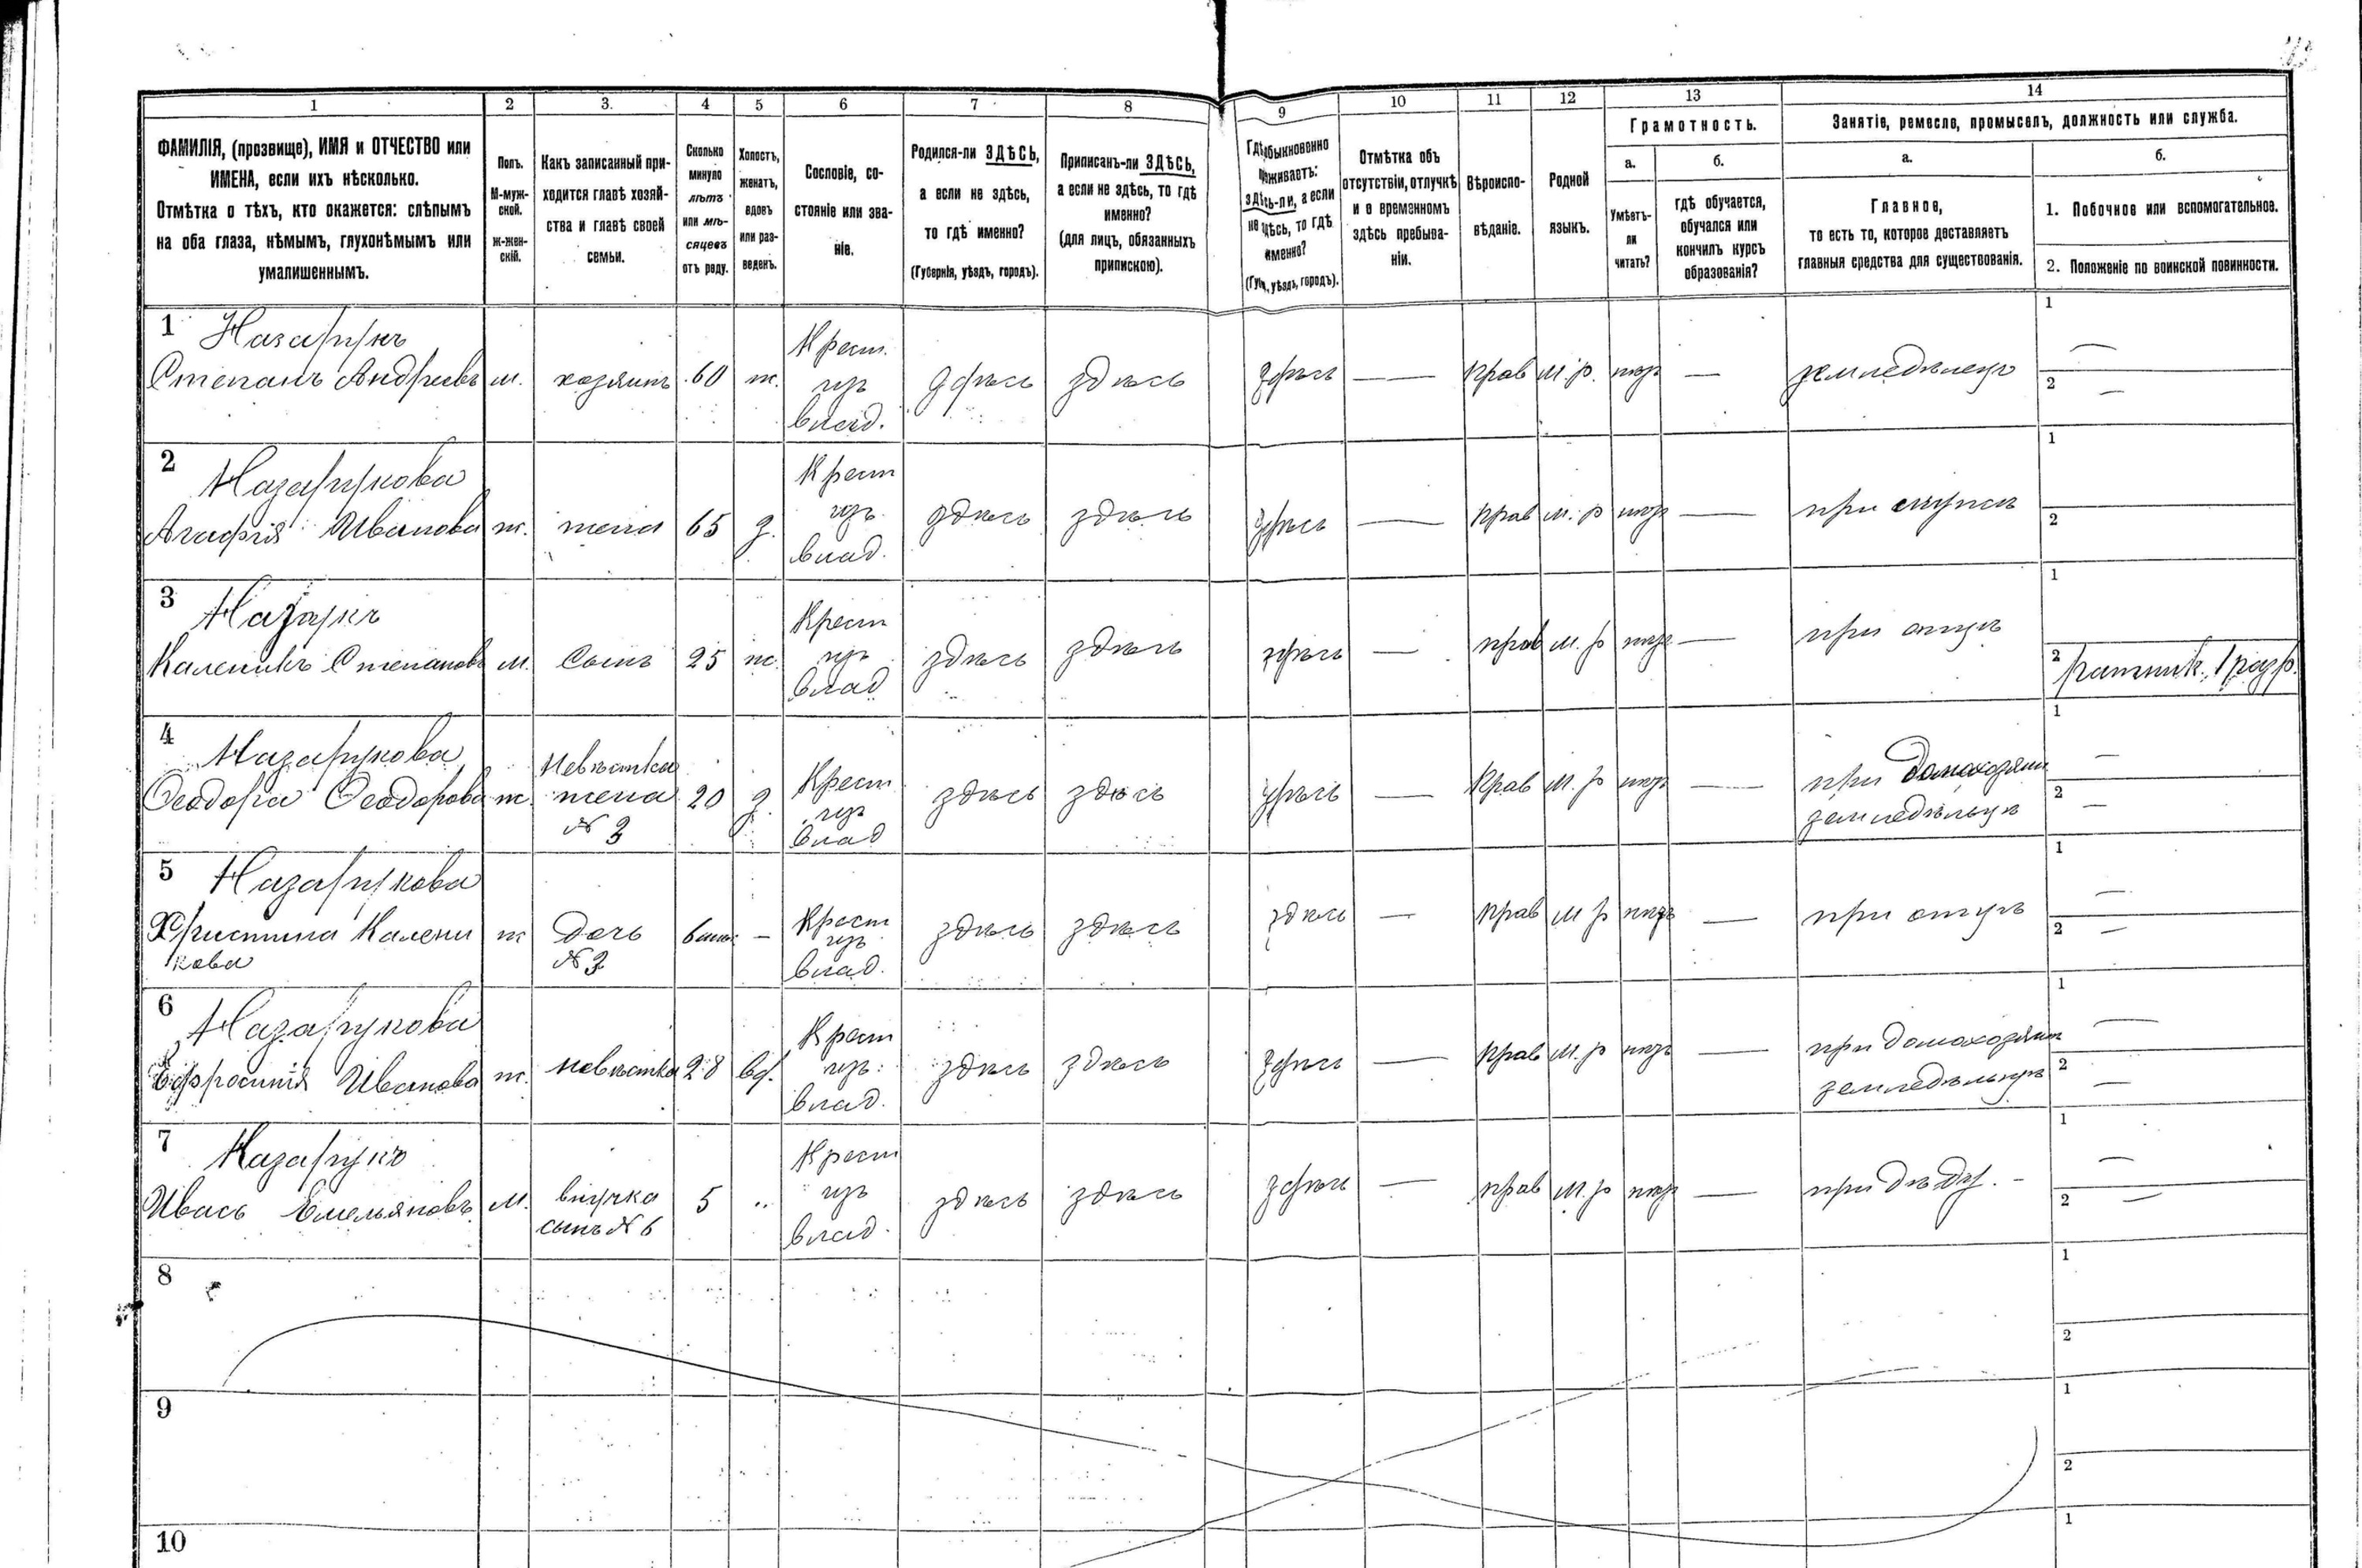 1 2 3. 4 5 6 7 8 9 10 11 12 13 14
ФАМИЛІЯ, (прозвище), ИМЯ и ОТЧЕСТВО или
ИМЕНА, если ихъ нѣсколько.
Отмѣтка о тѣхъ, кто окажется: слѣпымъ
на оба глаза, нѣмымъ, глухонѣмымъ или
умалишеннымъ.
Полъ.
М-муж-
ской.
Ж-жен-
скій.
Какъ записанный при-
ходится главѣ хозяй-
ства и главѣ своей
семьи.
Сколько
минуло
лѣтъ
или мѣ-
сяцевъ
отъ роду.
Холостъ,
женатъ,
вдовъ
или раз-
веденъ.
Сословіе, со-
стояніе или зва-
ніе.
Родился-ли ЗДѢСЬ,
а если не здѣсь,
то гдѣ именно?
(Губернія, уѣздъ, городъ).
Приписанъ-ли ЗДѢСЬ,
а если не здѣсь, то гдѣ
именно?
(для лицъ, обязанныхъ
припискою).
Гдѣ обыкновенно
проживаетъ:
здѣсь-ли, а если
не здѣсь, то гдѣ
именно?
(Губ., уѣздъ, городъ).
Отмѣтка объ
отсутствіи, отлучкѣ
и о временномъ
здѣсь пребыва-
ніи.
Вѣроиспо-
вѣданіе.
Родной
языкъ.
Грамотность.
а.
Умѣетъ-
ли
читать?
б.
гдѣ обучается,
обучался или
кончилъ курсъ
образованія?
Занятіе, ремесло, промыселъ, должность или служба.
а.
Главное,
то есть то, которое доставляетъ
главныя средства для существованія.
б.
1. Побочное или вспомогательное.
2. Положеніе по воинской повинности.
1 Назарукъ
Степанъ Андреевъ м. хозяинъ 60 ж. Крест. изъ влад. здѣсь здѣсь здѣсь — прав м. р. — земледѣлецъ 1 — 2 —
2 Назарукова
Агафія Ивановна ж. жена 65 з. Крест изъ влад. здѣсь здѣсь здѣсь — прав м. р — при 1 2
3 Назарукъ
Каленикъ Степановъ м. Сынъ 25 ж. Крест изъ влад здѣсь здѣсь здѣсь — прав м. р — при отцѣ 1 2 ратник. 1 разр.
4 Назарукова
Ѳеодора Ѳеодорова ж. невѣстка жена N 3 20 з. Крест изъ влад здѣсь здѣсь здѣсь — прав м. р — при домохозяинѣ земледѣльцѣ 1 — 2 —
5 Назарукова
Христина Калени
кова ж дочь N 3 — Крест изъ влад. здѣсь здѣсь здѣсь — прав м р — при отцѣ 1 — 2 —
6 Назарукова
Ефросинія Иванова ж. невѣстка 28 вд. Крест изъ влад. здѣсь здѣсь здѣсь — прав м. р — при домохозяинѣ земледѣльцѣ 1 — 2 —
7 Назарукъ
Ивась Емельяновъ м. внучка сынъ N 6 5 Крест изъ влад. здѣсь здѣсь здѣсь — прав м. р — при дѣду. 1 — 2 —
8 1 2
9 1 2
10 1